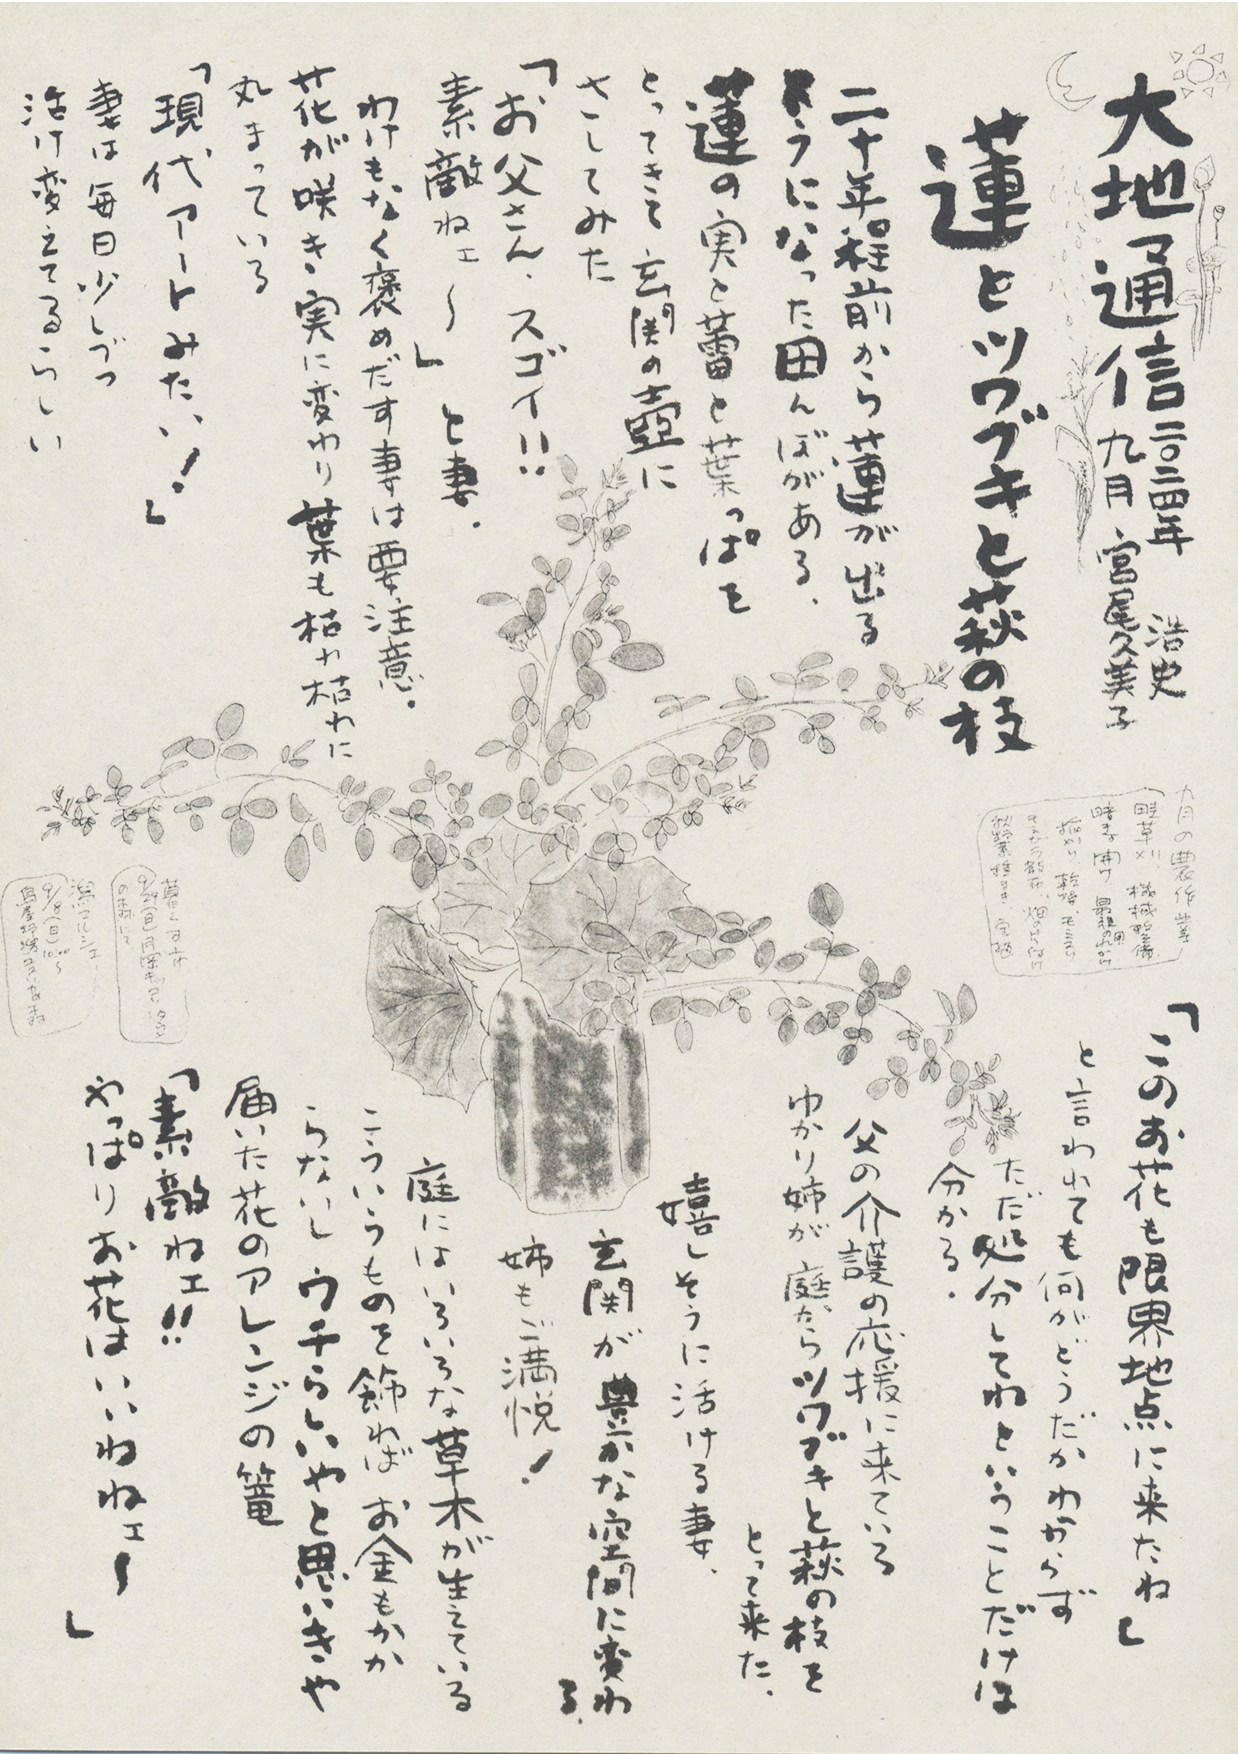 大地通信 二〇二四年 九月
浩史
宮尾久美子
蓮とツワブキと萩の枝
二十年程前から蓮が出る
ようになった田んぼがある、
蓮の実と蕾と葉っぱを
とってきて玄関の壺に
さしてみた
「お父さん、スゴイ!!
素敵ねェ〜」と妻、
わけもなく褒めだす妻は要注意。
花が咲き実に変わり葉も枯れ枯れに
丸まっている
「現代アートみたい!」
妻は毎日少しづつ
活け変えてるらしい
九月の農作業
畦草刈り 機械整備
稲刈り、乾燥、モミスリ
「このお花も限界地点に来たね」
と言われても何がどうだかわからず
ただ処分してねということだけは
分かる。
父の介護の応援に来ている
ゆかり姉が庭からツワブキと萩の枝を
とって来た、
嬉しそうに活ける妻、
玄関が豊かな空間に変わ
る、
姉もご満悦!
庭にはいろいろな草木が生えている
こういうものを飾ればお金もかか
らないしウチらしいやと思いきや
届いた花のアレンジの篭
「素敵ねェ!!
やっぱりお花はいいねねェー」
潟マルシェ
9/8(日)